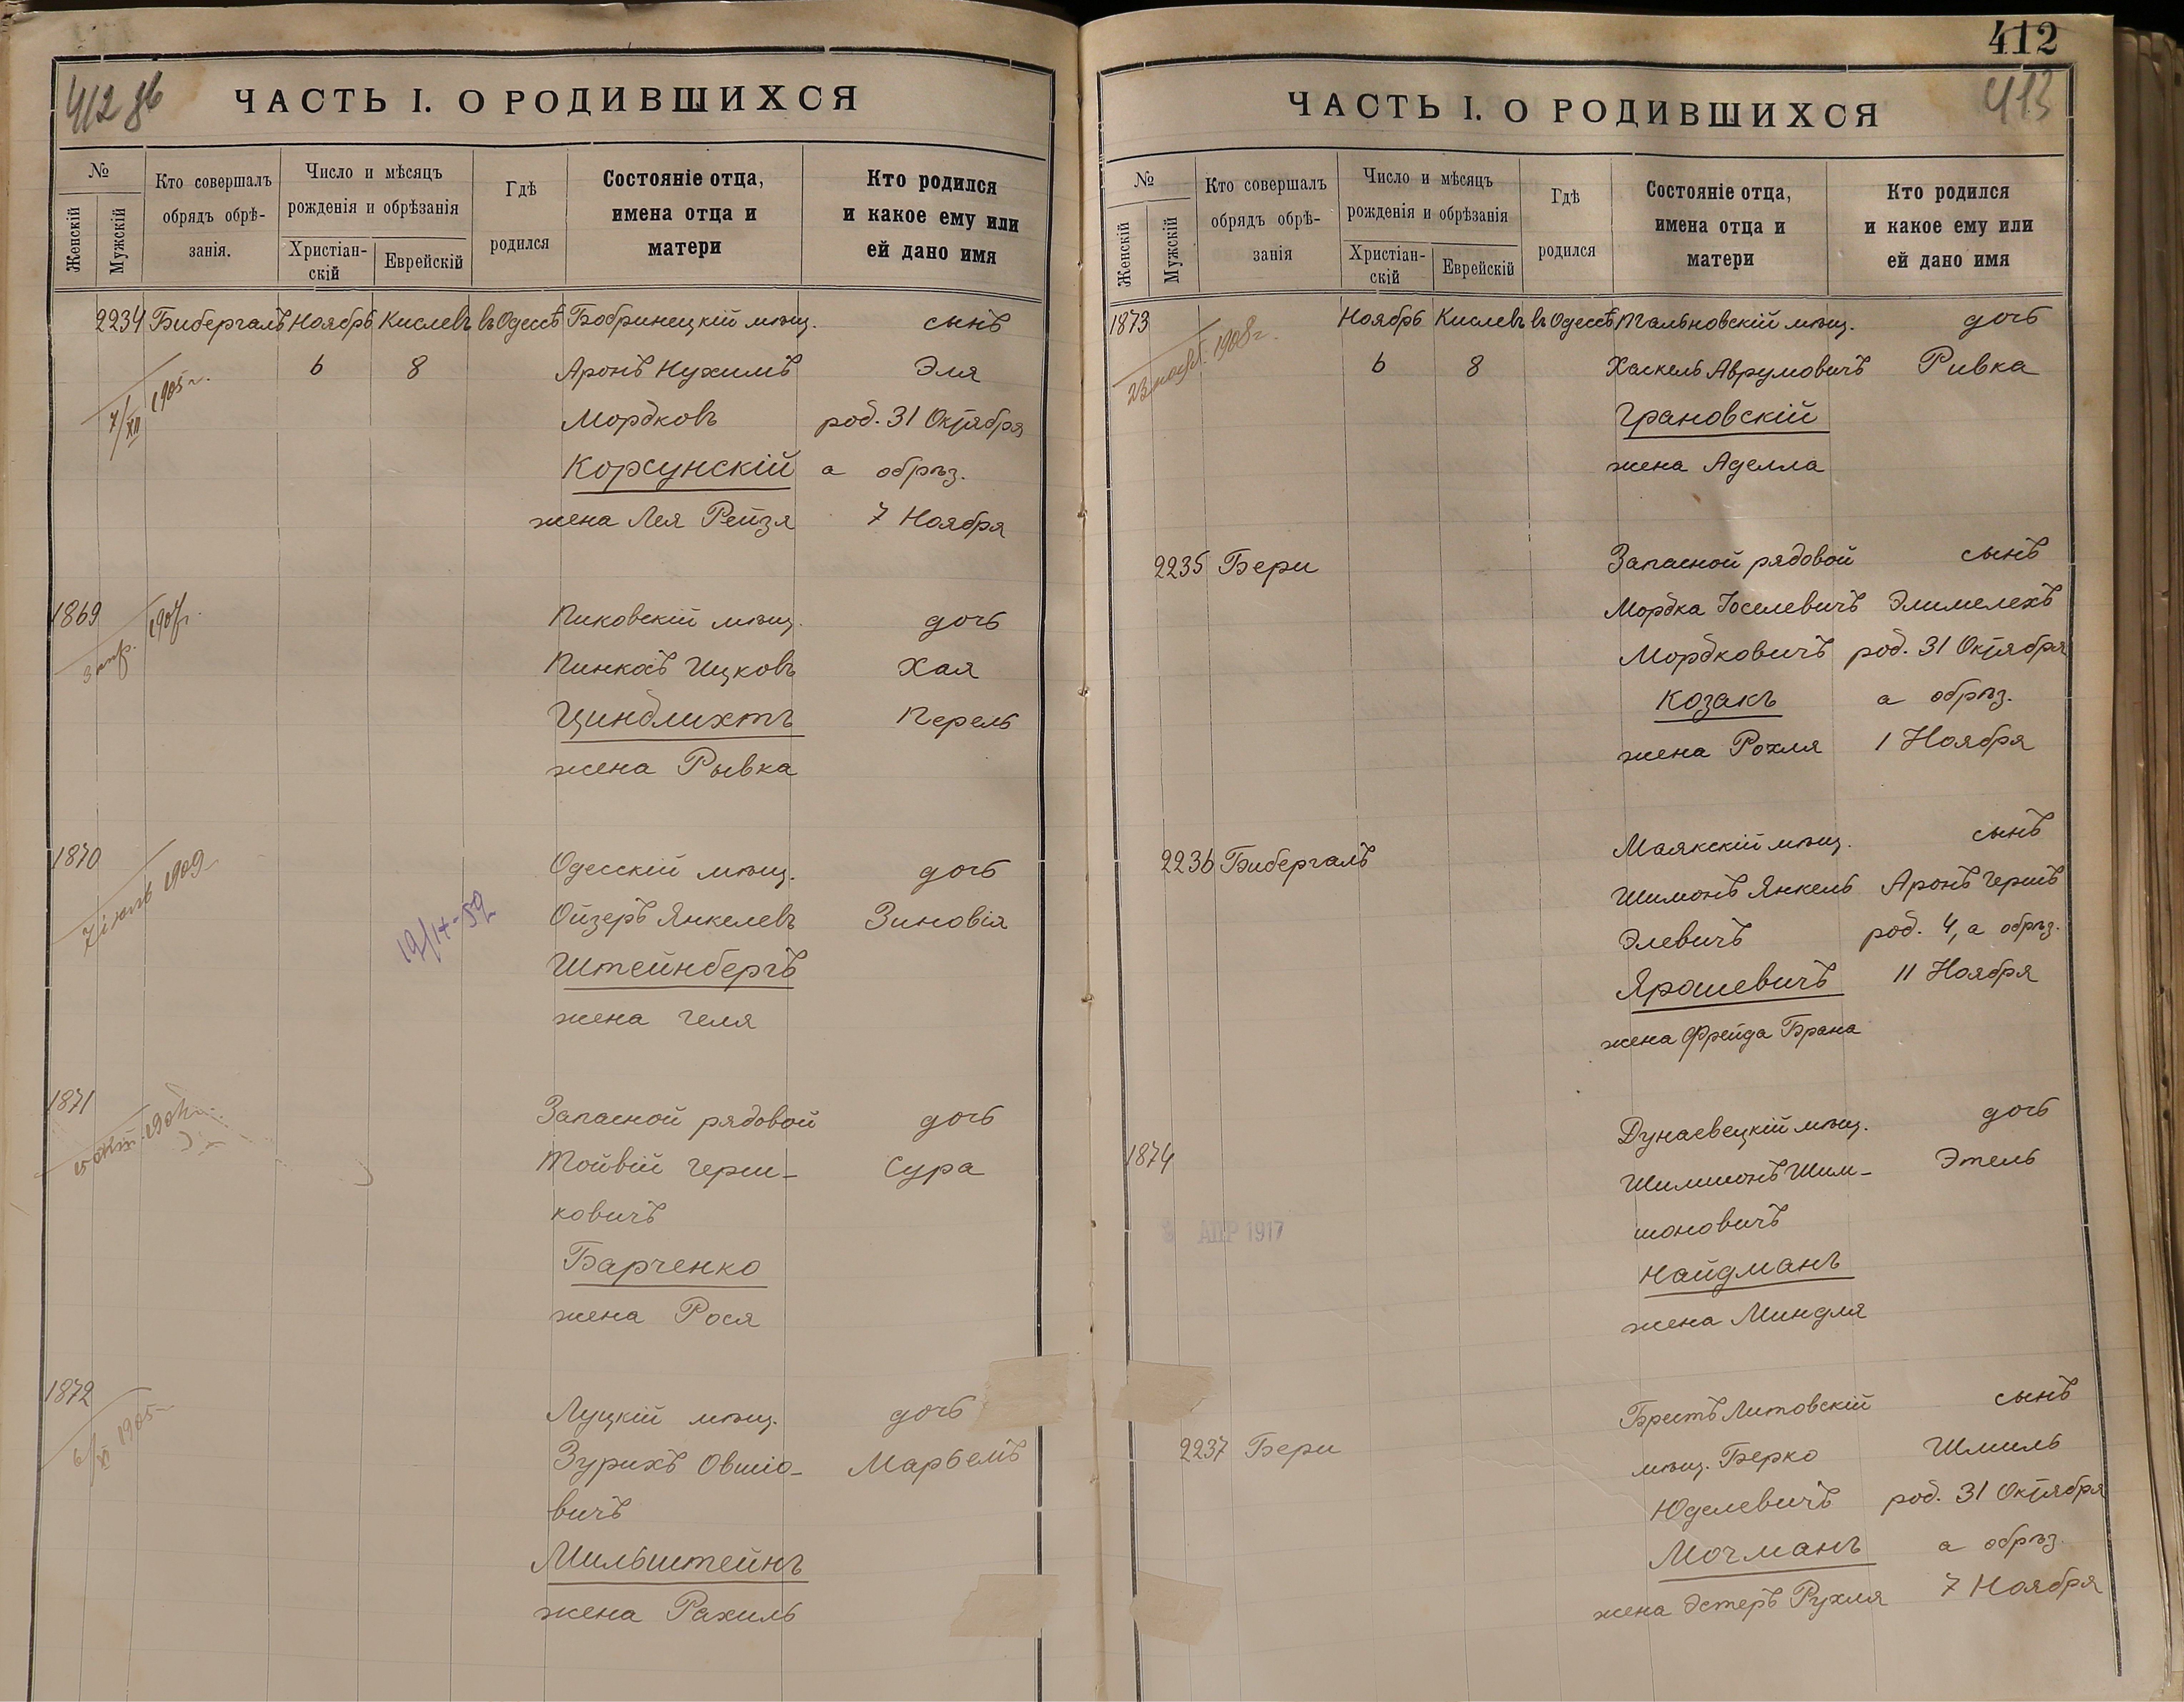 412 об
ЧАСТЬ I. О РОДИВШИХСЯ
№
Женскій
Мужскій
Кто совершалъ
обрядъ обрѣ-
занія.
Число и мѣсяцъ
рожденія и обрѣзанія
Христіан-
скій
Еврейскій
Гдѣ
родился
Состояніе отца,
имена отца и
матери
Кто родился
и какое ему или
ей дано имя
2234 Бибергалъ Ноябрь Кислевъ въ Одессѣ Бобринецкій мѣщ. сынъ
6 8 Аронъ Нухимъ Эля
7/XII 1905 г.
Мордковъ род. 31 Октября
Корсунскій а обрѣз.
жена Лея Рейзя 7 Ноября
1869 Пиковскій мѣщ. дочь
Пинхасъ Ицковъ Хая
Цинблихтъ Перель
жена Рывка
1870 Одесскій мѣщ. дочь
1909
Ойзеръ Янкелевъ Зиновія
Штейнбергъ
жена Геля
1871 Запасной рядовой дочь
Тойвій Герш-
Сура
ковичъ
Барченко
жена Рося
1872 Луцкій мѣщ. дочь
6/XI 1905
Зурихъ Овшіо-
Марьемъ
вичъ
Мильштейнъ
жена Рахиль
412
413
ЧАСТЬ I. О РОДИВШИХСЯ
№
Женскій
Мужскій
Кто совершалъ
обрядъ обрѣ-
занія
Число и мѣсяцъ
рожденія и обрѣзанія
Христіан-
скій
Еврейскій
Гдѣ
родился
Состояніе отца,
имена отца и
матери
Кто родился
и какое ему или
ей дано имя
1873 Ноябрь Кислевъ въ Одессѣ Тальновскій мѣщ. дочь
23 нояб. 1908 г.
6 8 Хаскель Аврумовичъ Ривка
Грановскій
жена Аделла
2235 Бери Запасной рядовой сынъ
Мордка Іоселевичъ Элимелехъ
Мордковичъ род. 31 Октября
Козакъ а обрѣз.
жена Рохля 1 Ноября
2236 Бибергалъ Маякскій мѣщ. сынъ
Шимонъ Янкель Аронъ Гершъ
Элевичъ род. 4, а обрѣз.
Ярошевичъ 11 Ноября
жена Фрейда Брана
1874 Дунаевецкій мѣщ. дочь
Шимшонъ Шим-
Этель
шоновичъ
АПР 1917
Найдманъ
жена Миндля
Брестъ Литовскій сынъ
2237 Бери мѣщ. Берко Шмиль
Юделевичъ род. 31 Октября
Мочманъ а обрѣз.
жена Эстеръ Рухля 7 Ноября